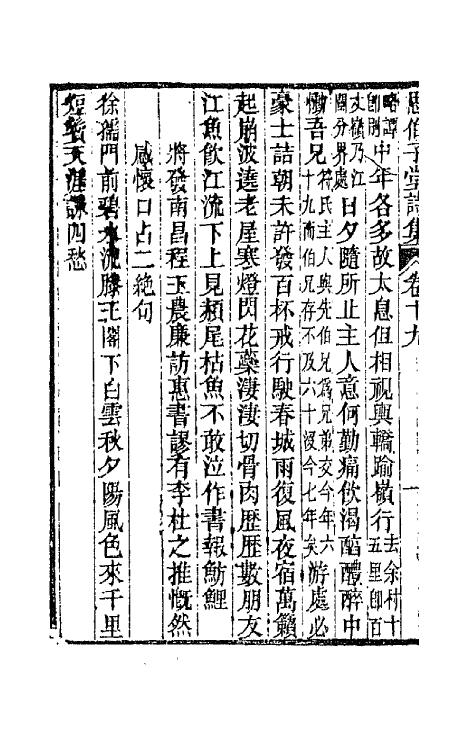 思伯子堂詩集 卷十九
略譚中年各多故太息但相視輿轎踰橫行去余村十五里卽百
丈嶺乃江閩分界處日夕隨所止主人意何勤痛飲渴醅醴醉中
慟吾兄符民主人與先伯兄爲兄弟交今年六十九而伯兄存不及六十沒今七年矣游處必
豪士詰朝未許發百杯戒行駛春城雨復風夜宿萬籟
起崩波遶老屋寒燈閃花蘂淒淒切骨肉歷歷數朋友
江魚飲江流下上見頳尾枯魚不敢泣作書報魴鯉
將發南昌程玉農廉訪惠書謬有李杜之推慨然
感懷口占二絶句
徐孺門前碧水流滕王閣下白雲秋夕陽風色來千里
短鬢天涯詠四愁